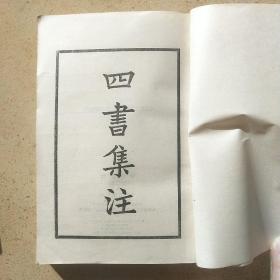 四書集注